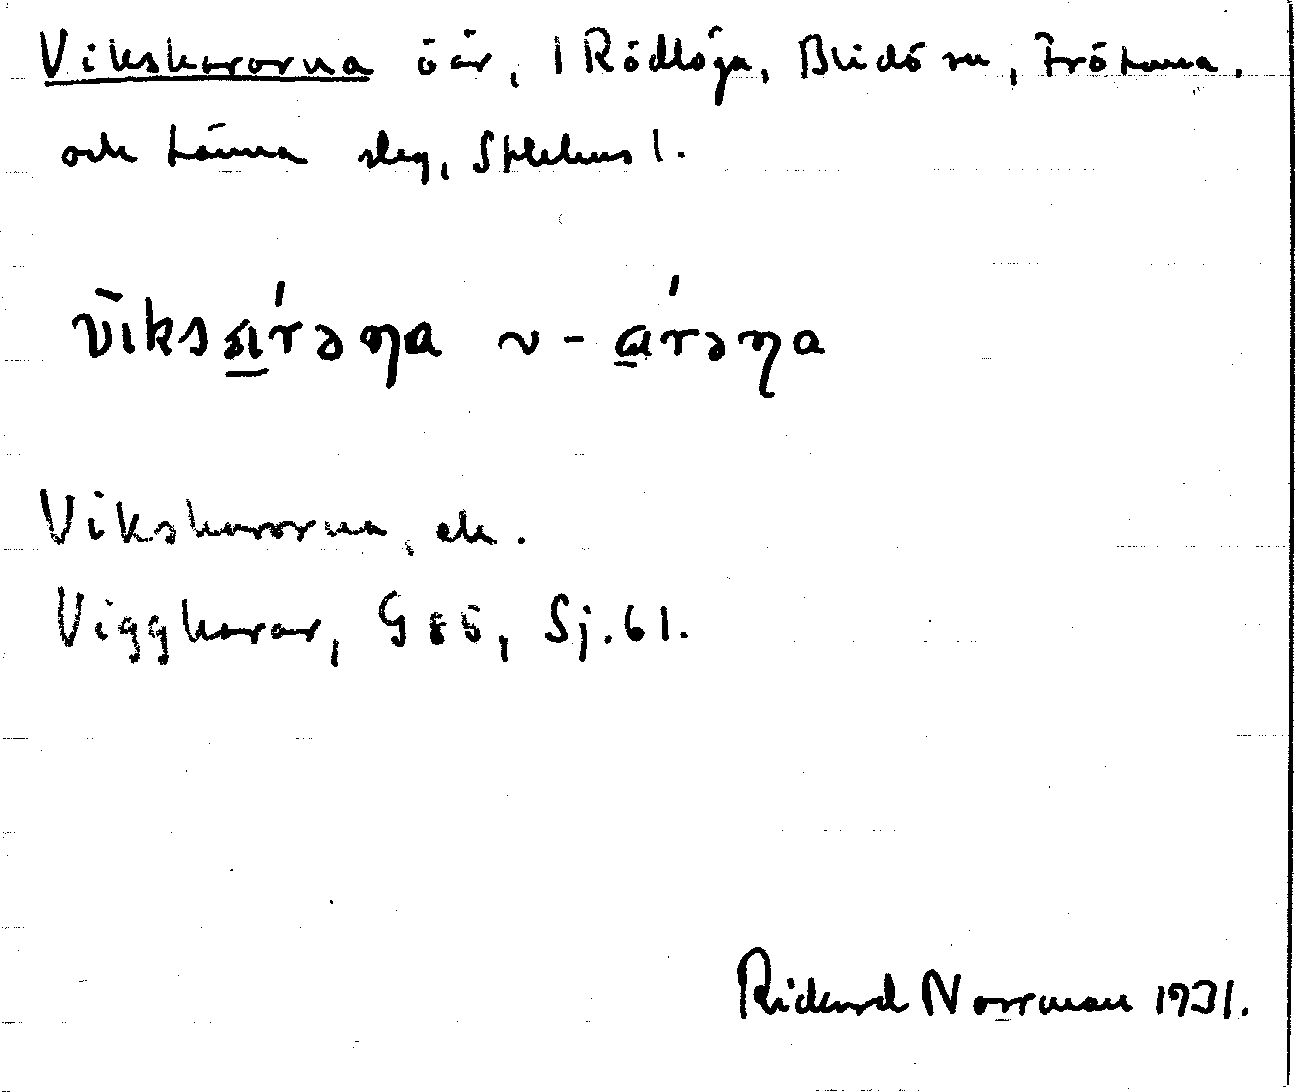 Vikskärorna öar, 1 Rödlöga, Blidö sn, Frötuna
och Länna slg, Sthlms l.
v̄iksa̲ŕəηa ~ -a̲ŕəηa
Vikskärorna, ek.
Viggkarar, G 85, Sj. 61.
Rickard Norrman 1931.